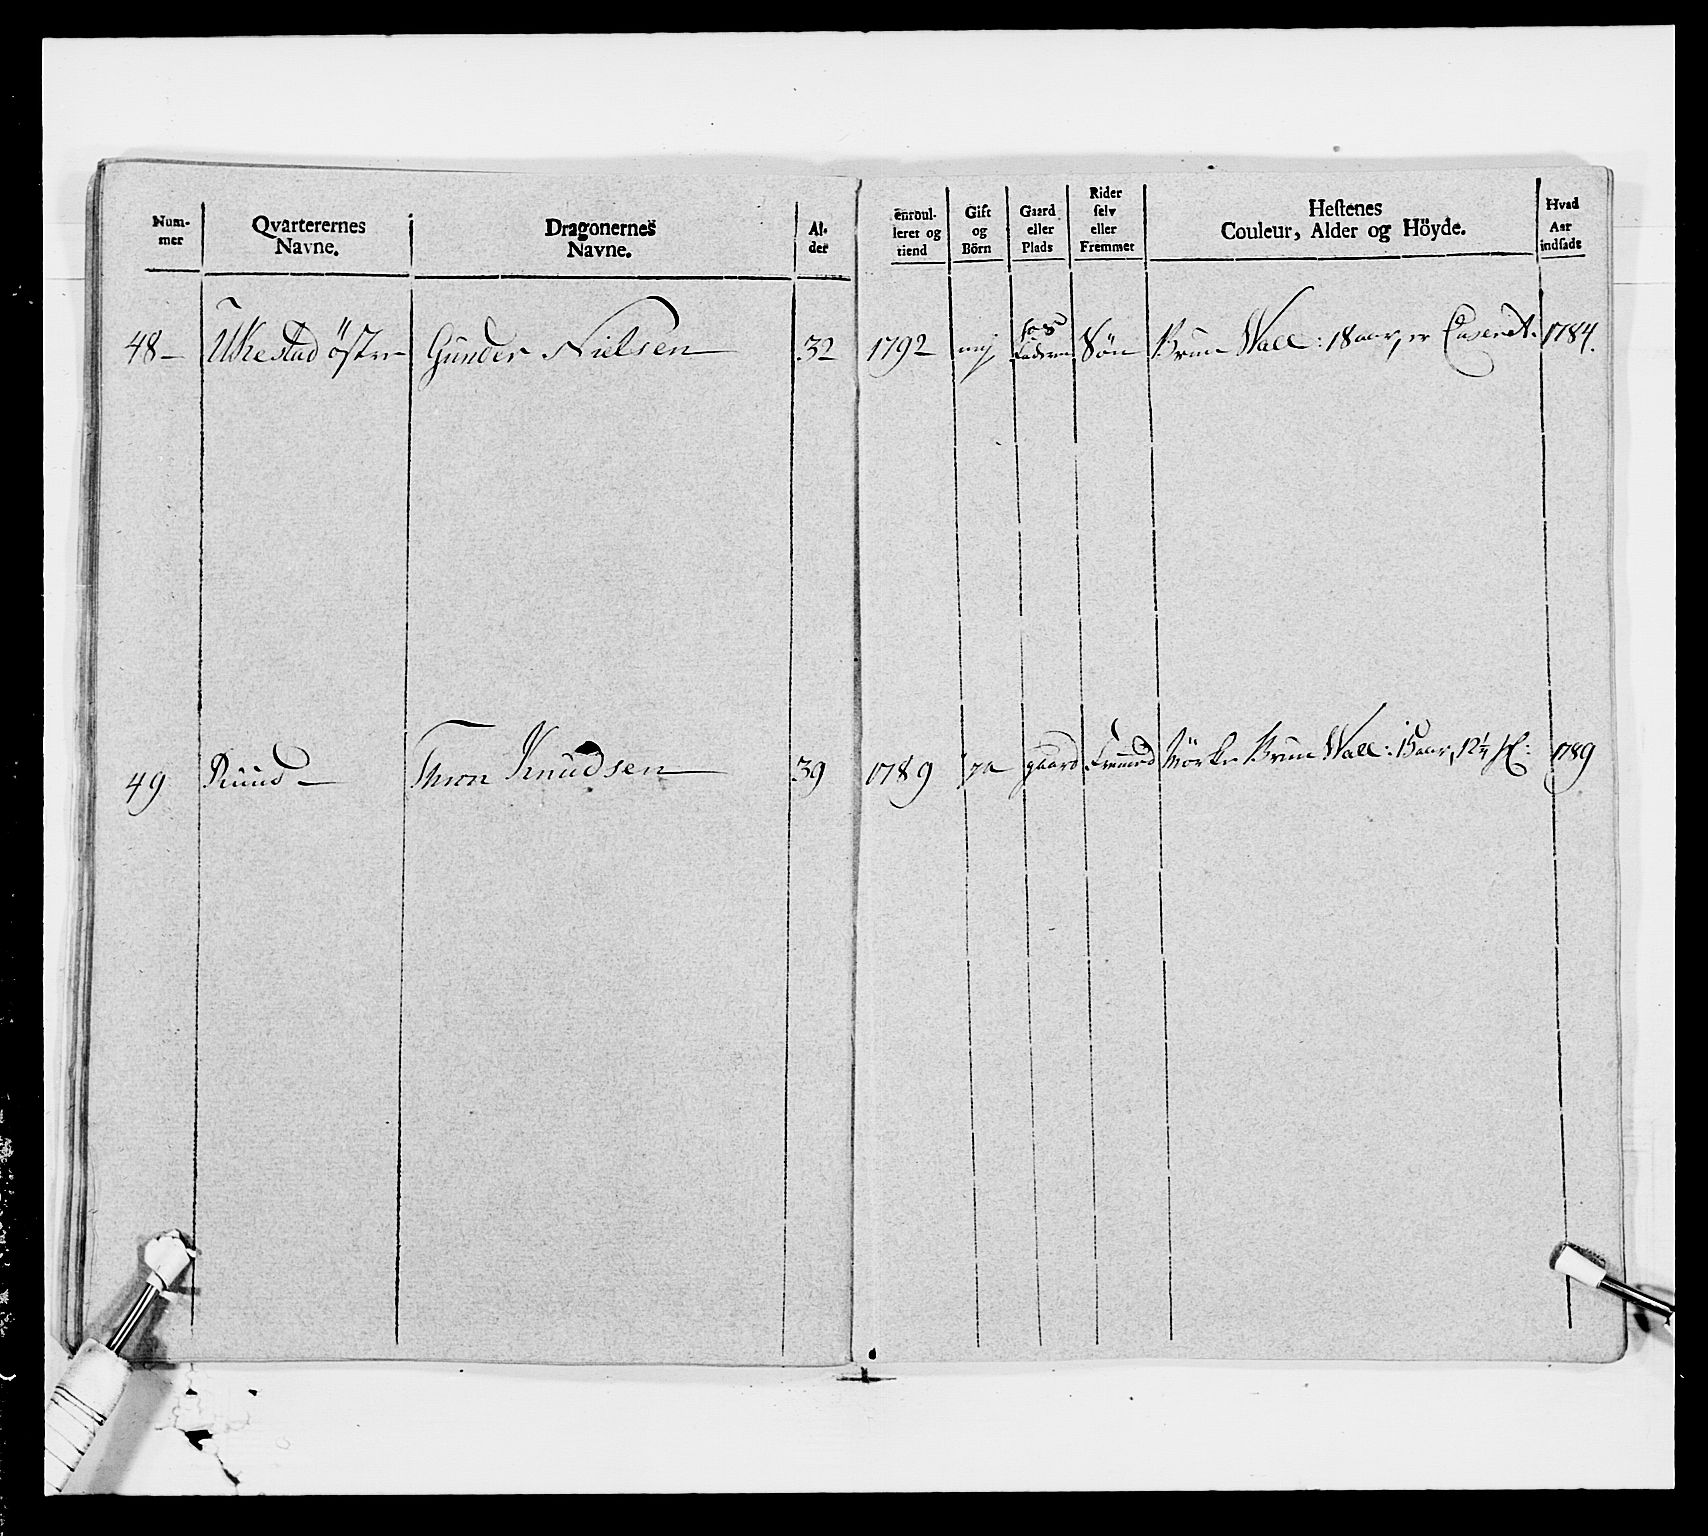 Num-
mer
Qvarterernes
Navne.
Dragonernes
Navne.
Al-
der
enroul-
leret og
tiend
Gift
og
Börn
Gaard
eller
Plads
Rider
selv
eller
Fremmet
Hestenes
Couleur, Alder og Höyde.
Hvad
Aar
indsadt
48 — Ukestad östre Gunder Nielsen — 32 1792 nej hos Faderen Sön Brun Wall: 18 aar, er Casered. 1784.
49 Ruud — Thron Knudsen — 39 1789 ja gaard Fremmed Mörke Brun Wall: 15 aar, 1789